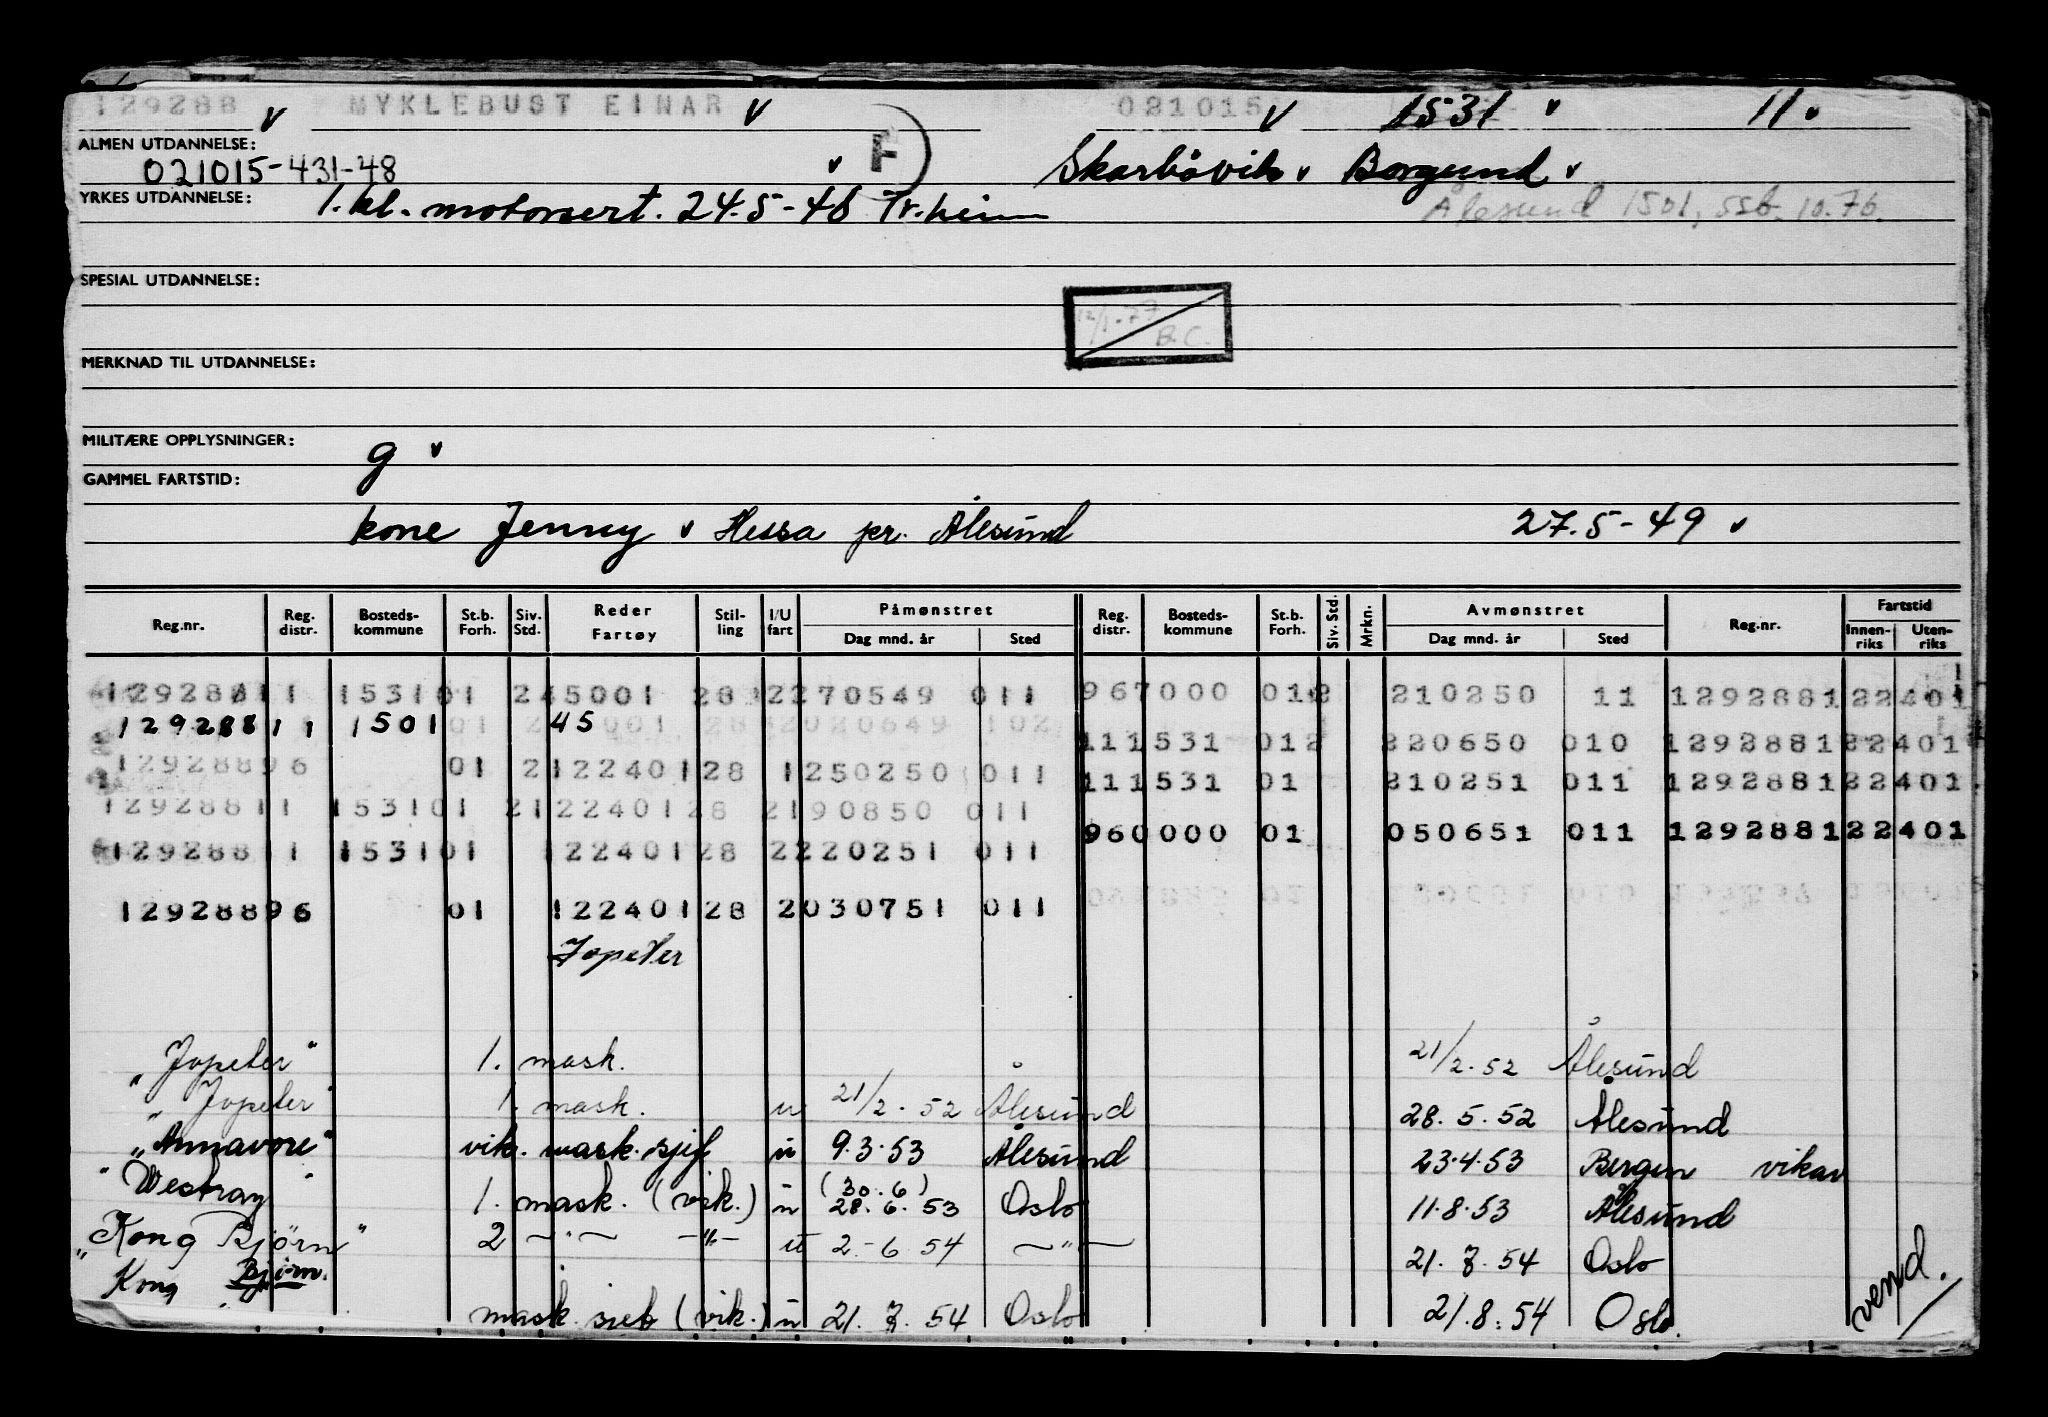 129288 MYKLEBUST EINAR 021015 1531 11.
ALMEN UTDANNELSE:
021015-431-48 F Skarbövik Borgund
YRKES UTDANNELSE: 1. kl. motorsert. 24.5-46 Tr.heim Ålesund 1501, ssb. 10.76.
SPESIAL UTDANNELSE:
12/1-77
B.C.
MERKNAD TIL UTDANNELSE:
MILITÆRE OPPLYSNINGER: g
GAMMEL FARTSTID:
kone Jenny Hessa pr. Ålesund 27.5-49
Reg.nr. Reg. distr. Bosteds-kommune St.b. Forh. Siv. Std. Reder Fartøy Stil-ling I/U fart Påmønstret Dag mnd. år Sted Reg. distr. Bosteds-kommune St.b. Forh. Siv. Std. Mrkn. Avmønstret Dag mnd. år Sted Reg.nr. Fartstid Innen-riks Uten-riks
12928811 153101 245001 28 2270549 011 967000 012 210250 11 129288122401
12928811 1501 01 45001 28 2020649 102 111531 012 220650 010 129288122401
12928896 01 212240128 1250250 011 111531 01 210251 011 129288122401
12928811 153101 212240128 2190850 011 960000 01 050651 011 129288122401
12928811 153101 12240128 2220251 011
12928896 01 12240128 2030751 011
Jopeter
"Jopeter" 1. mask. 21/2.52 Ålesund
"Jopeter" 1. mask. u 21/2.52 Ålesund 28.5.52 Ålesund
"Annavore" vik. mask.sjef u 9.3.53 Ålesund 23.4.53 Bergen vikar
"Westray" 1. mask. (vik.) u (30.6) 28.6.53 Oslo 11.8.53 Ålesund
"Kong Bjørn" 2 —"— —"— u 2.-6.54 —"— 21.7.54 Oslo
Kong Bjørn. mask. sjef (vik.) u 21.7.54 Oslo 21.8.54 Oslo.
vend.